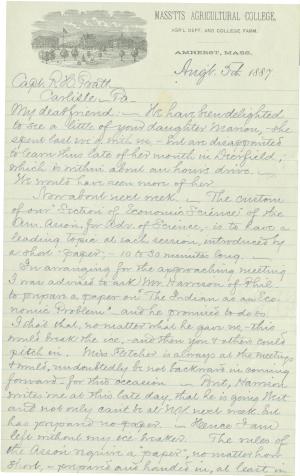 MASS'TTS AGRICULTURAL COLLEGE,
AGR'L DEPT. AND COLLEGE FARM.
AMHERST, MASS.
Aug't. 3d 1887
Capt. R. H. Pratt
Carlisle - Pa
My dear friend: - We have been delighted
to see a little of your daughter Marion, - she
spent last we'd with me - but am disappointed
to learn thus late of her month in Deerfield,
which is within about an hours drive. -
We would have seen more of her.
Now about next week. - The custom
of our "Section of Economic Science" of the
Am. Asson. for Adv. of Science, - is to have a
leading topic at each session, introduced by
a short "paper", - 10 to 30 minutes long. -
In arranging for the approaching meeting
I was advised to ask Mr. Harrison of Phil
to prepare a paper on "The Indian as an Eco-
nomic Problem" - and he promised to do so.
I hoped that, no matter what he gave us - this
would break the ice, - and then you & others could
pitch in. Miss Fletcher is always at the meetings
& would, undoubtedly be not backward in coming
forward - for this occasion - But, Harrison
writes me at this late day, that he is going West
and not only can't be at N.Y. next week but
has prepared no paper. - Hence I am
left without my ice breaker. The rules of
the Asson require a "paper", no matter how
short, - prepared and handed in, at least in